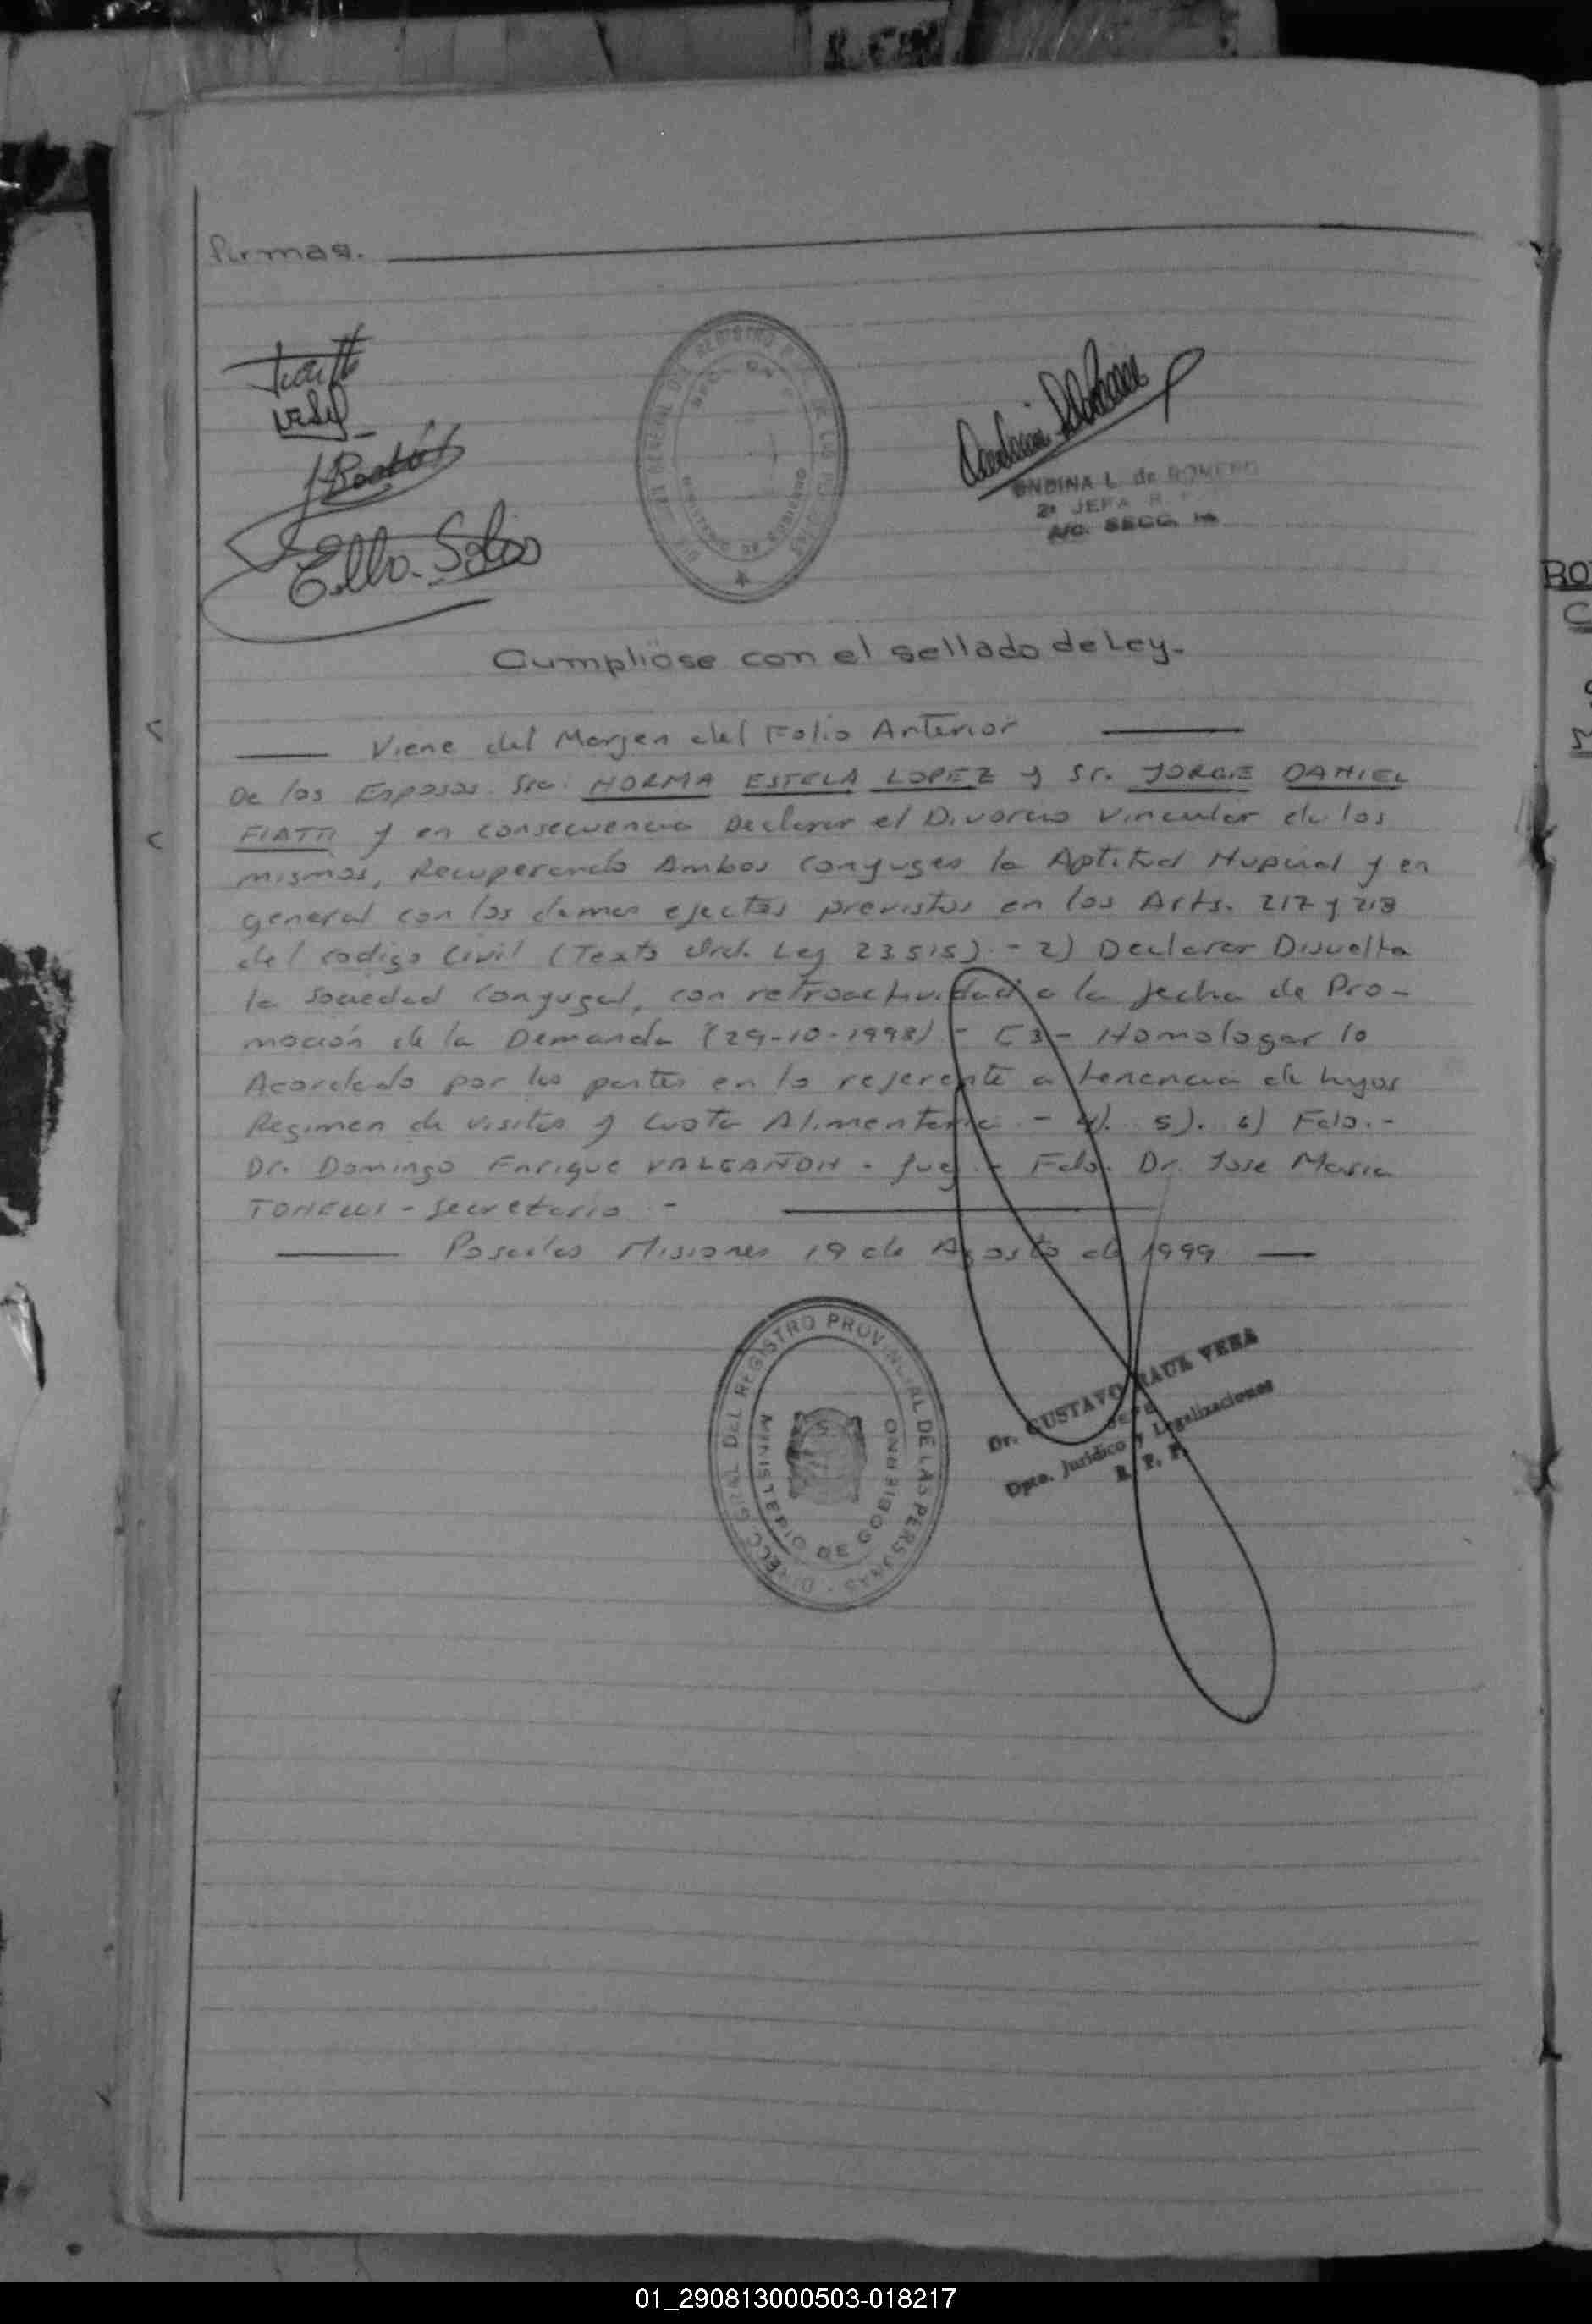 firmas.
Ello. Solis
ONDINA L. de ROMERO
2ª JEFA R.
A/C. SECC. 1ª
Cumplióse con el sellado de Ley.-
Viene del Margen del Folio Anterior
De los Esposos Sra. NORMA ESTELA LOPEZ y Sr. JORGE DANIEL
FIATTI y en consecuencia Declarar el Divorcio Vincular de los
mismos, Recuperando Ambos conyuges la Aptitud Nupcial y en
general con los demas efectos previstos en los Arts. 217 y 218
del codigo Civil (Texto Ord. Ley 23.515).- 2) Declarar Disuelta
la Sociedad Conyugal, con retroactividad a la fecha de Pro-
moción de la Demanda (29-10-1998) - (3- Homologar lo
Acordado por las partes en lo referente a tenencia de hijos
Regimen de visitas y Cuota Alimentaria.- 4). 5). 6) Fdo.-
Dr. Domingo Enrique VALCAÑON - Juez.- Fdo. Dr. Jose Maria
TONELLI - Secretario.-
Posadas Misiones 19 de Agosto de 1999.
DIRECC. GRAL. DEL REGISTRO PROVINCIAL DE LAS PERSONAS
MINISTERIO DE GOBIERNO
Dr. GUSTAVO RAUL VERA
JEFE
Dpto. Jurídico y Legalizaciones
R. P. P.
BO
C
01_290813000503-018217